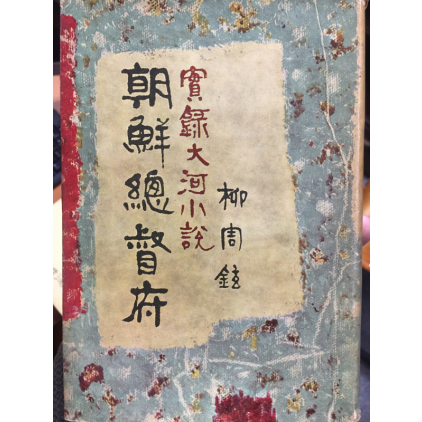 朝鮮總督府
實錄大河小說
柳周鉉